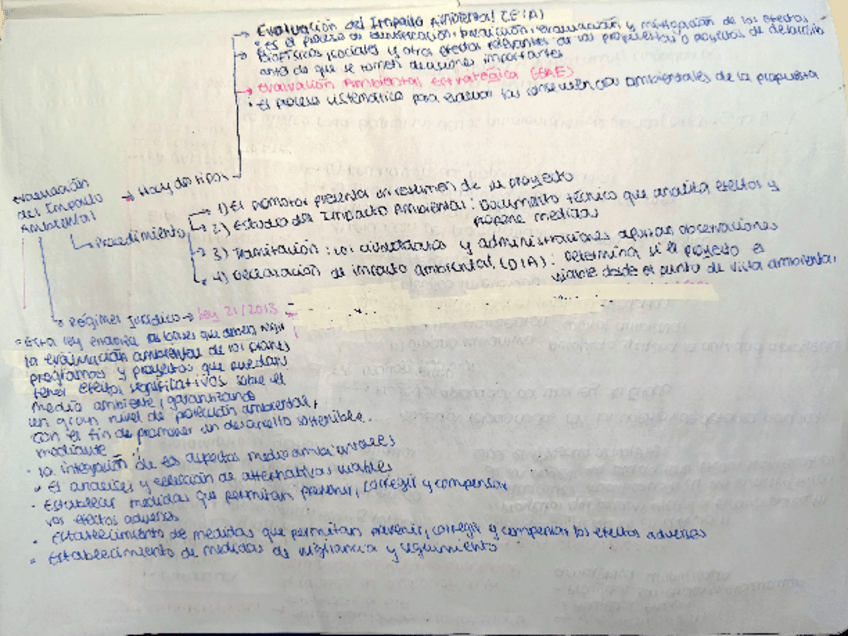 Evaluación del Impacto Ambiental (EIA)
• es el proceso de identificación, predicción, evaluación y mitigación de los efectos
biofísicos, sociales y otros efectos relevantes de las propuestas o proyectos de desarrollo
antes de que se tomen decisiones importantes
Evaluación Ambiental Estratégica (EAE)
• El proceso sistemático para evaluar las consecuencias ambientales de la propuesta
Evaluación
del Impacto
Ambiental
→ Hay dos tipos
Procedimiento
1) El promotor presenta un resumen de su proyecto
2) Estudio del Impacto Ambiental: Documento técnico que analiza efectos y
propone medidas
3) Tramitación: los ciudadanos y administraciones aportan observaciones
4) Declaración de impacto ambiental (DIA): Determina si el proyecto es
viable desde el punto de vista ambiental
Régimen jurídico → Ley 21/2013
Esta ley las bases que deben regir
la evaluación ambiental de los planes
programas y proyectos que puedan
tener efectos significativos sobre el
medio ambiente, garantizando
un gran nivel de protección ambiental,
con el fin de promover un desarrollo sostenible.
mediante
• la integración de los aspectos medioambientales
• El análisis y selección de alternativas viables
• Establecer medidas que permitan prevenir, corregir y compensar
los efectos adversos
• Establecimiento de medidas que permitan prevenir, corregir y compensar los efectos adversos
• Establecimiento de medidas de vigilancia y seguimiento